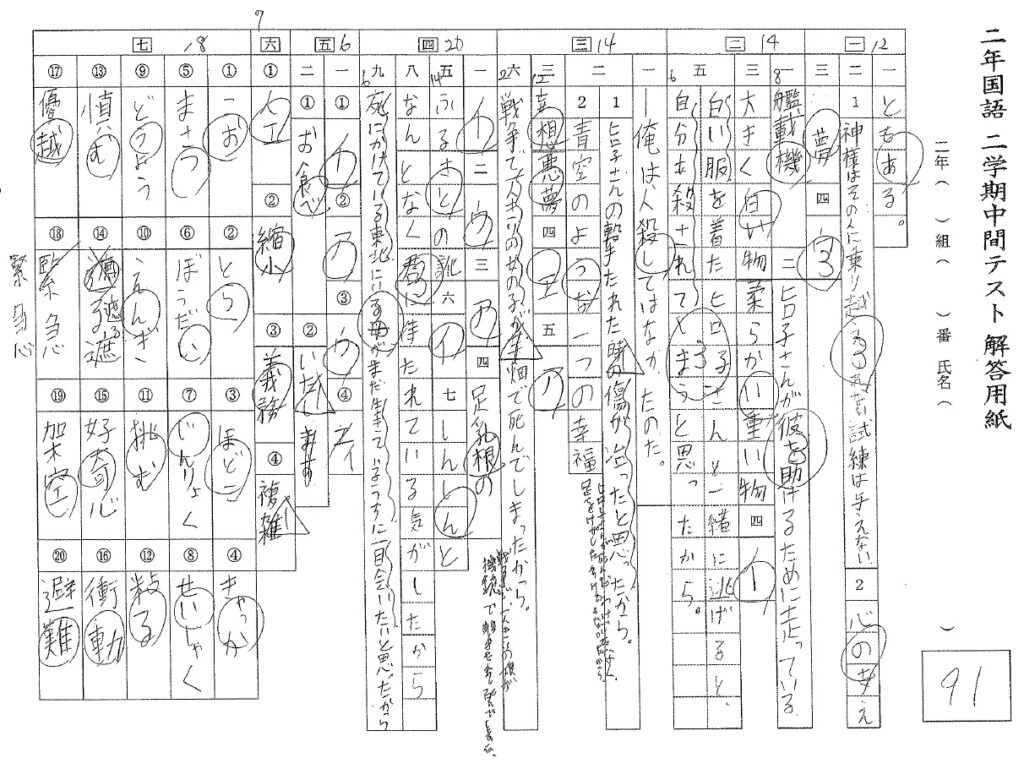 二年国語 二学期中間テスト 解答用紙
二年( )組( )番 氏名( )
91
一 12
一 ともある。
二 1 神様はその人に乗り越えられない試練は与えない 2 心の支え
三 夢 四 3
二 14
一 艦載機 二 ヒロ子さんが彼を助けるために走っている
8
三 大きく白い物 柔らかい重い物 四 イ
五 白い服を着たヒロ子さんと一緒に逃げると、
自分も殺されてしまうと思ったから。
6
三 14
一 俺は人殺しではなかったのだ。
二 1 ヒロ子さんの撃たれた時の傷が治ったと思ったから。
2 青空のような一つの幸福
三 妄想悪夢 四 エ 五 ア
12
六 戦争で一人きりの女の子が芋畑で死んでしまったから。
2
四 20
一 イ 二 ウ 三 ア 四 足乳根の
五 ふるさとの訛 六 イ 七 しんしんと
14
八 なんとなく君に待たれている気がしたから
九 死にかけている東北にいる母がまだ生きているうちに一目会いたいと思ったから
6
五 6
一 ① イ ② ア ③ ウ ④ エ
二 ① お食べ ② いただきます
六 7
① 人工 ② 縮小 ③ 義務 ④ 複雑
七 18
① こお ② とら ③ ほどこ ④ きゃっか
⑤ まさつ ⑥ ぼうだい ⑦ じんりょく ⑧ せいじゃく
⑨ どうよう ⑩ えんぎ ⑪ 挑む ⑫ 粘る
⑬ 慎む ⑭ 遮る 遮 ⑮ 好奇心 ⑯ 衝動
⑰ 優越 ⑱ 緊急 ⑲ 架空 ⑳ 避難
緊急